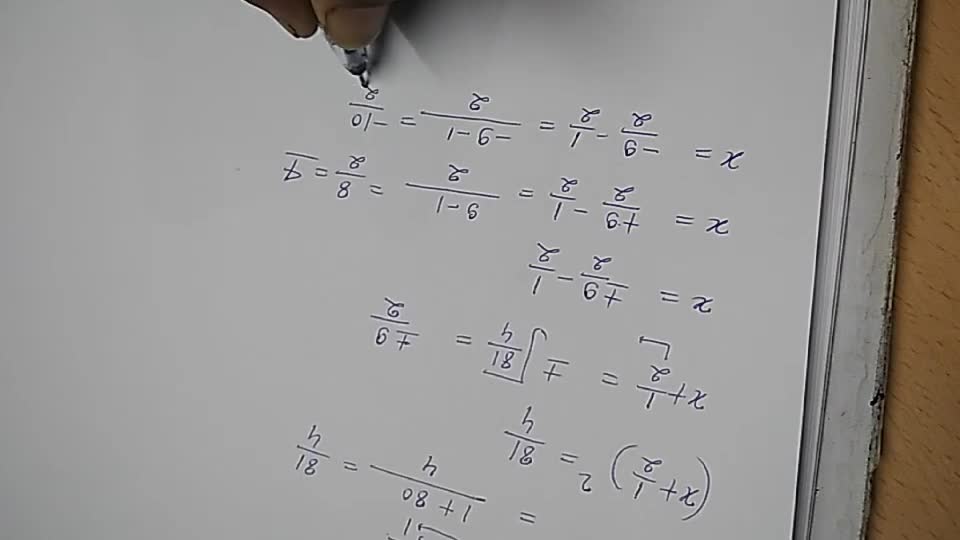 = 1 + 80 / 4 = 81/4
(x + 1/2)² = 81/4
x + 1/2 = ± √81/4 = ±9/2
x = ±9/2 - 1/2
x = +9/2 - 1/2 = 9-1/2 = 8/2 = 4
x = -9/2 - 1/2 = -9-1/2 = -10/2